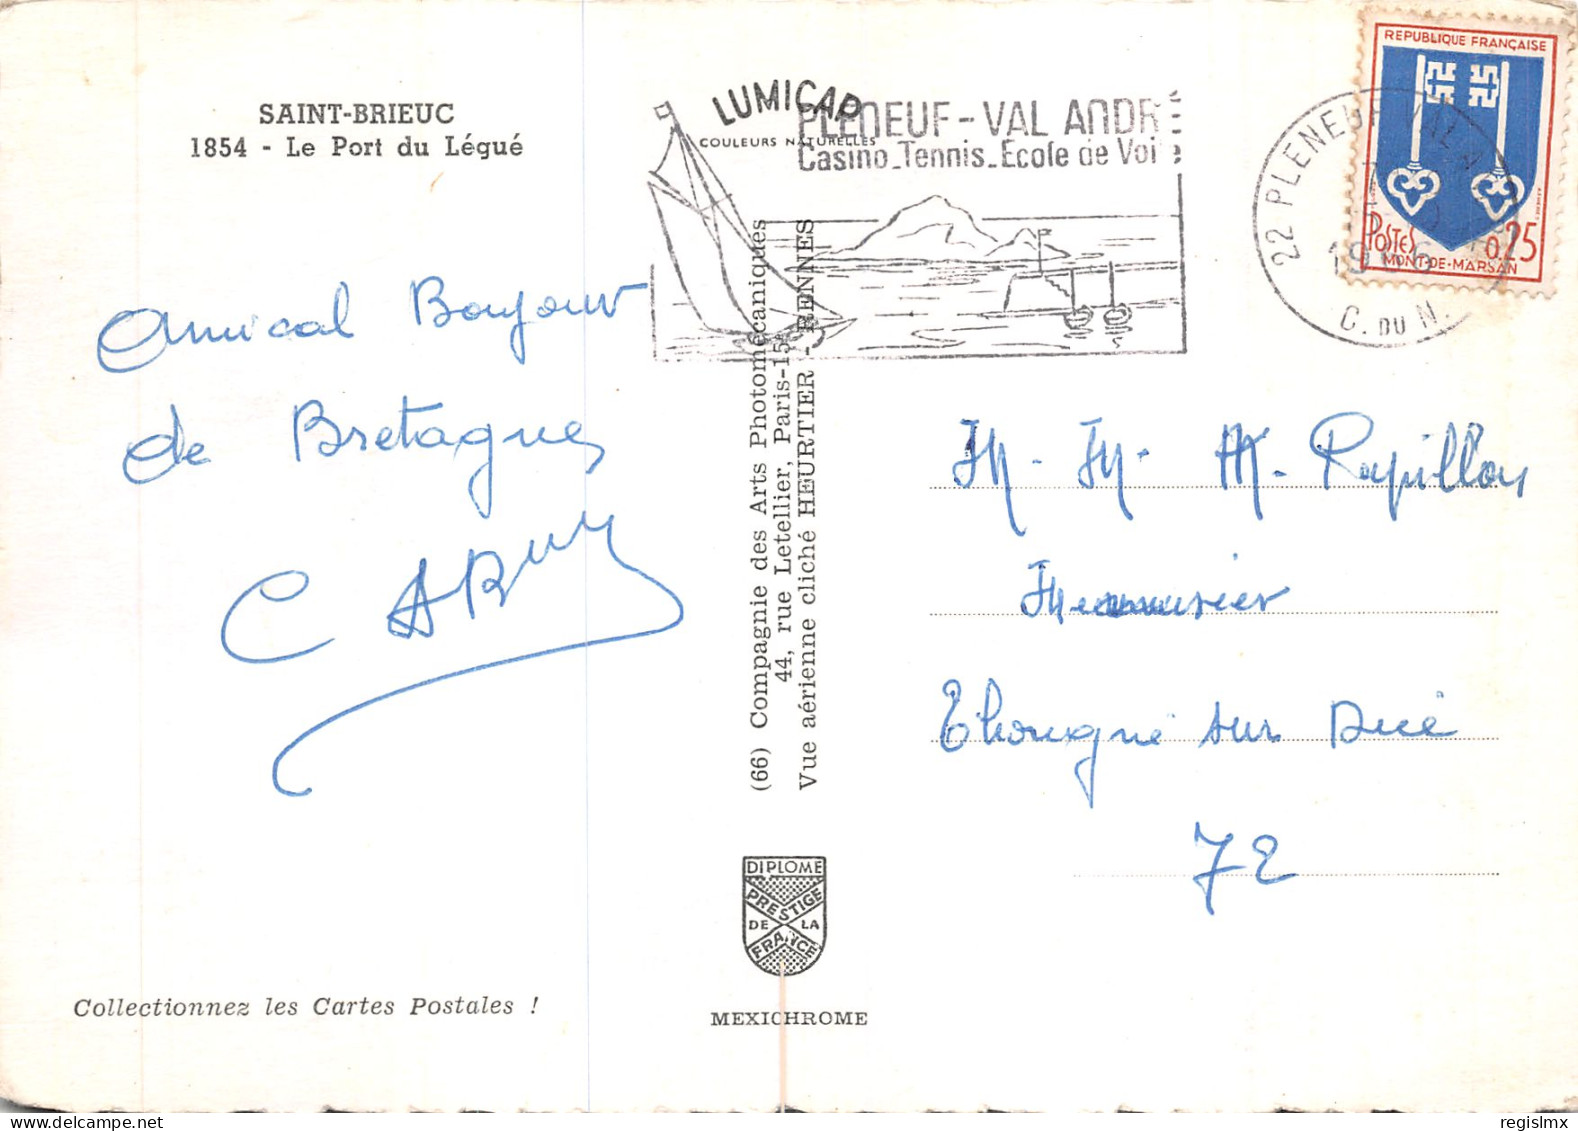 SAINT-BRIEUC
1854 - Le Port du Légué
Amical Bonjour
de Bretagne
Collectionnez les Cartes Postales !
LUMICAP
COULEURS NATURELLES
PLENEUF - VAL ANDRÉ
Casino_Tennis_Ecole de Voile
(66) Compagnie des Arts Photomécaniques
44, rue Letellier, Paris-15
Vue aérienne cliché HEURTIER - RENNES
DIPLOME
PRESTIGE
DE LA
FRANCE
MEXICHROME
22 PLENEUF VAL A
1966
C. DU N.
REPUBLIQUE FRANÇAISE
POSTES 0,25
MONT-DE-MARSAN
M. Papillon
Menuisier
Thorigné sur Dué
72
regislmx